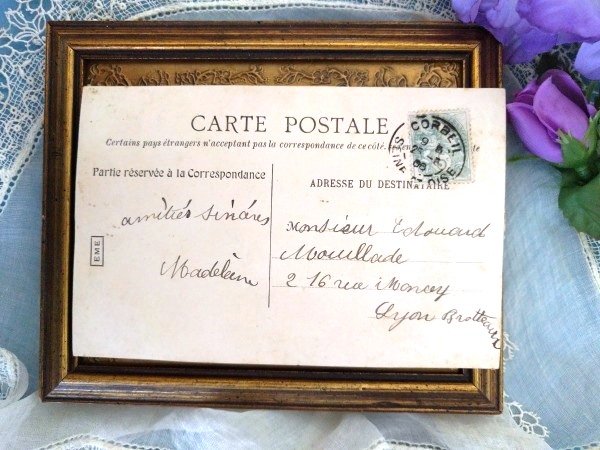 CARTE POSTALE
Certains pays étrangers n'acceptant pas la correspondance de ce côté. se
Partie réservée à la Correspondance
ADRESSE DU DESTINATAIRE
CORBEIL
SEINE
OISE
EME
amitiés sincères
Madeleine
Monsieur Edouard
Mouillade
216 rue Moncey
Lyon Brotteaux